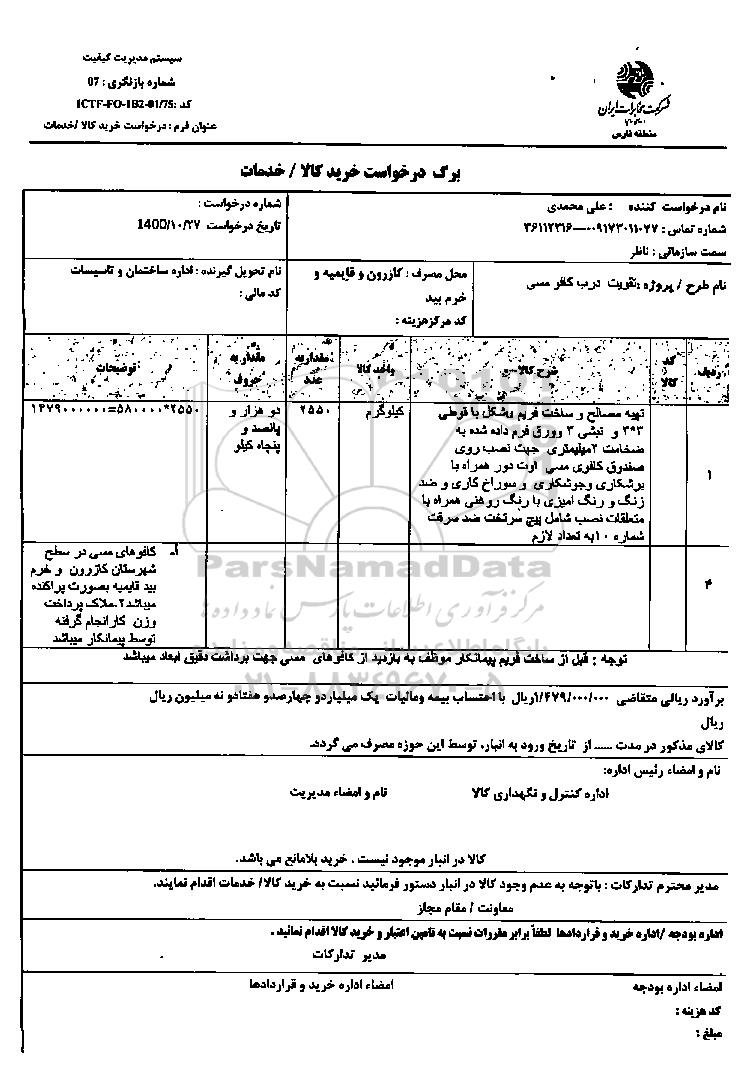 سیستم مدیریت کیفیت
شماره بازنگری : 07
کد :ICTF-FO-1B2-01/75
عنوان فرم : درخواست خرید کالا /خدمات
شرکت مخابرات ایران
منطقه فارس
برگ درخواست خرید کالا / خدمات
نام درخواست کننده : علی محمدی
شماره تماس : ۰۹۱۷۳۰۱۱۰۲۷-۳۶۱۱۲۳۱۶
سمت سازمانی : ناظر
شماره درخواست :
تاریخ درخواست ۱۴۰۰/۱۰/۲۷
نام طرح / پروژه :تقویت درب کافر مسی
محل مصرف : کازرون و قایمیه و
خرم بید
کد مرکزهزینه :
نام تحویل گیرنده : اداره ساختمان و تاسیسات
کد مالی :
ردیف
کد
کالا
شرح کالا
واحد کالا
مقدار به
عدد
مقدار به
حروف
توضیحات
۱
تهیه مصالح و ساخت فریم بشکل با قوطی
۳*۳ و نبشی ۳ وورق فرم داده شده به
ضخامت ۲میلیمتری جهت نصب روی
صندوق کافوی مسی اوت دور همراه با
برشکاری وجوشکاری و سوراخ کاری و ضد
زنگ و رنگ امیزی با رنگ روغنی همراه با
متعلقات نصب شامل پیچ سرتخت ضد سرقت
شماره ۱۰به تعداد لازم
کیلوگرم
۲۵۵۰
دو هزار و
پانصد و
پنجاه کیلو
۲۵۵۰*۵۸۰۰۰۰=۱۴۷۹۰۰۰۰۰۰
۲
۱- کافوهای مسی در سطح
شهرستان کازرون و خرم
بید قایمیه بصورت پراکنده
میباشد۲.ملاک پرداخت
وزن کارانجام گرفته
توسط پیمانکار میباشد
ParsNamadData
مرکز فرآوری اطلاعات پارس نماد داده ها
پایگاه اطلاع رسانی مناقصه و مزایده
۰۲۱-۸۸۳۴۹۶۷۰-۵
توجه : قبل از ساخت فریم پیمانکار موظف به بازدید از کافوهای مسی جهت برداشت دقیق ابعاد میباشد
برآورد ریالی متقاضی ۱/۴۷۹/۰۰۰/۰۰۰ریال با احتساب بیمه ومالیات یک میلیاردو چهارصدو هفتادو نه میلیون ریال
ریال
کالای مذکور در مدت ...... از تاریخ ورود به انبار، توسط این حوزه مصرف می گردد.
نام و امضاء رئیس اداره:
اداره کنترل و نگهداری کالا
نام و امضاء مدیریت
کالا در انبار موجود نیست . خرید بلامانع می باشد.
مدیر محترم تدارکات : باتوجه به عدم وجود کالا در انبار دستور فرمائید نسبت به خرید کالا/ خدمات اقدام نمایند.
معاونت / مقام مجاز
اداره بودجه /اداره خرید و قراردادها لطفاً برابر مقررات نسبت به تامین اعتبار و خرید کالا اقدام نمائید .
مدیر تدارکات
امضاء اداره بودجه
امضاء اداره خرید و قراردادها
کد هزینه :
مبلغ :